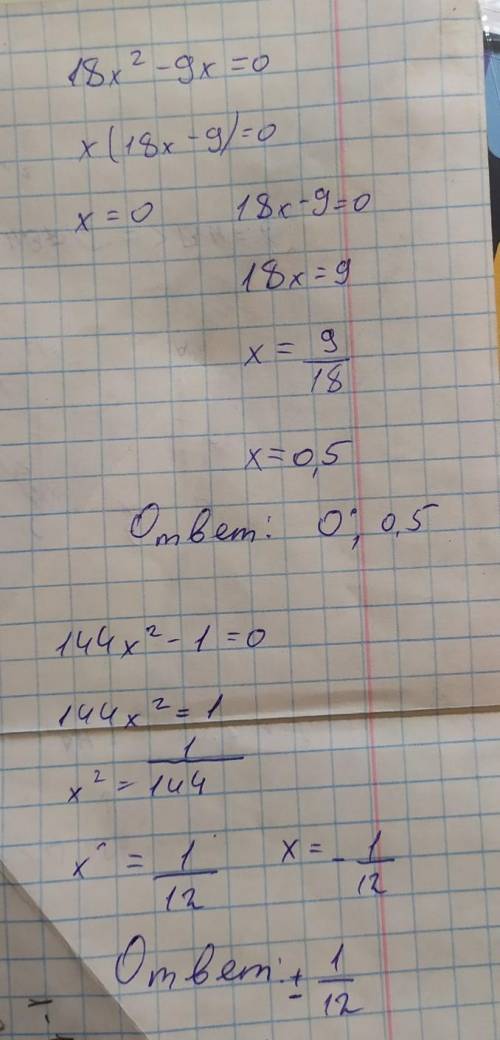 18x² - 9x = 0
x(18x - 9) = 0
x = 0 18x - 9 = 0
18x = 9
x = 9/18
x = 0,5
Ответ: 0; 0,5
144x² - 1 = 0
144x² = 1
x² = 1/144
x = 1/12 x = - 1/12
Ответ: ± 1/12